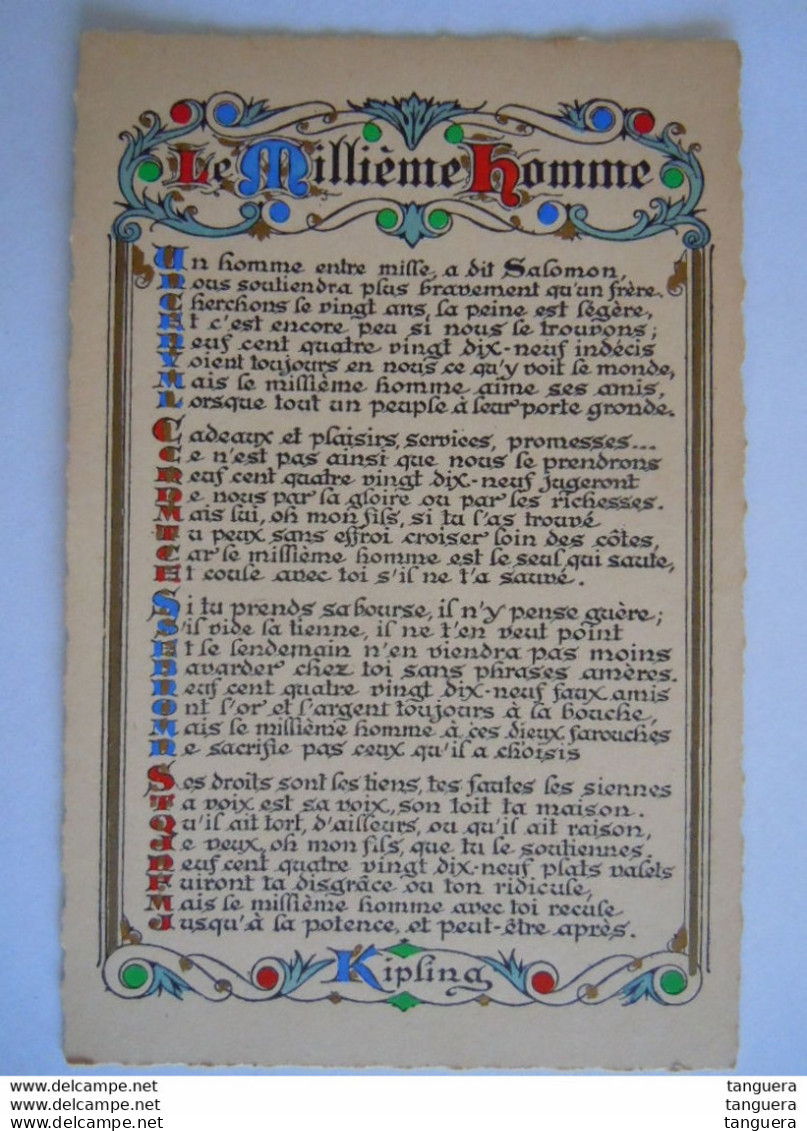 Le Millième Homme
Un homme entre mille, a dit Salomon,
Nous soutiendra plus bravement qu'un frère.
Cherchons le vingt ans, la peine est légère,
Et c'est encore peu si nous le trouvons ;
Neuf cent quatre vingt dix-neuf indécis
Voient toujours en nous ce qu'y voit le monde,
Mais le millième homme aime ses amis,
Lorsque tout un peuple à leur porte gronde.
Cadeaux et plaisirs, services, promesses...
Ce n'est pas ainsi que nous le prendrons
Neuf cent quatre vingt dix-neuf jugeront
De nous par la gloire ou par les richesses.
Mais lui, oh mon fils, si tu l'as trouvé
Tu peux sans effroi croiser loin des côtes,
Car le millième homme est le seul qui saute,
Et coule avec toi s'il ne t'a sauvé.
Si tu prends sa bourse, il n'y pense guère ;
S'il vide la tienne, il ne t'en veut point
Et le lendemain n'en viendra pas moins
Bavarder chez toi sans phrases amères.
Neuf cent quatre vingt dix-neuf faux amis
Ont l'or et l'argent toujours à la bouche,
Mais le millième homme à ces dieux farouches
Ne sacrifie pas ceux qu'il a choisis
Ses droits sont les tiens, tes fautes les siennes
Ta voix est sa voix, son toit ta maison.
Qu'il ait tort, d'ailleurs, ou qu'il ait raison,
Je veux, oh mon fils, que tu le soutiennes.
Neuf cent quatre vingt dix-neuf plats valets
Fuiront ta disgrâce ou ton ridicule,
Mais le millième homme avec toi recule
Jusqu'à la potence, et peut-être après.
Kipling
www.delcampe.net
www.delcampe.net
www.delcampe.net
tanguera
tanguera
tanguera